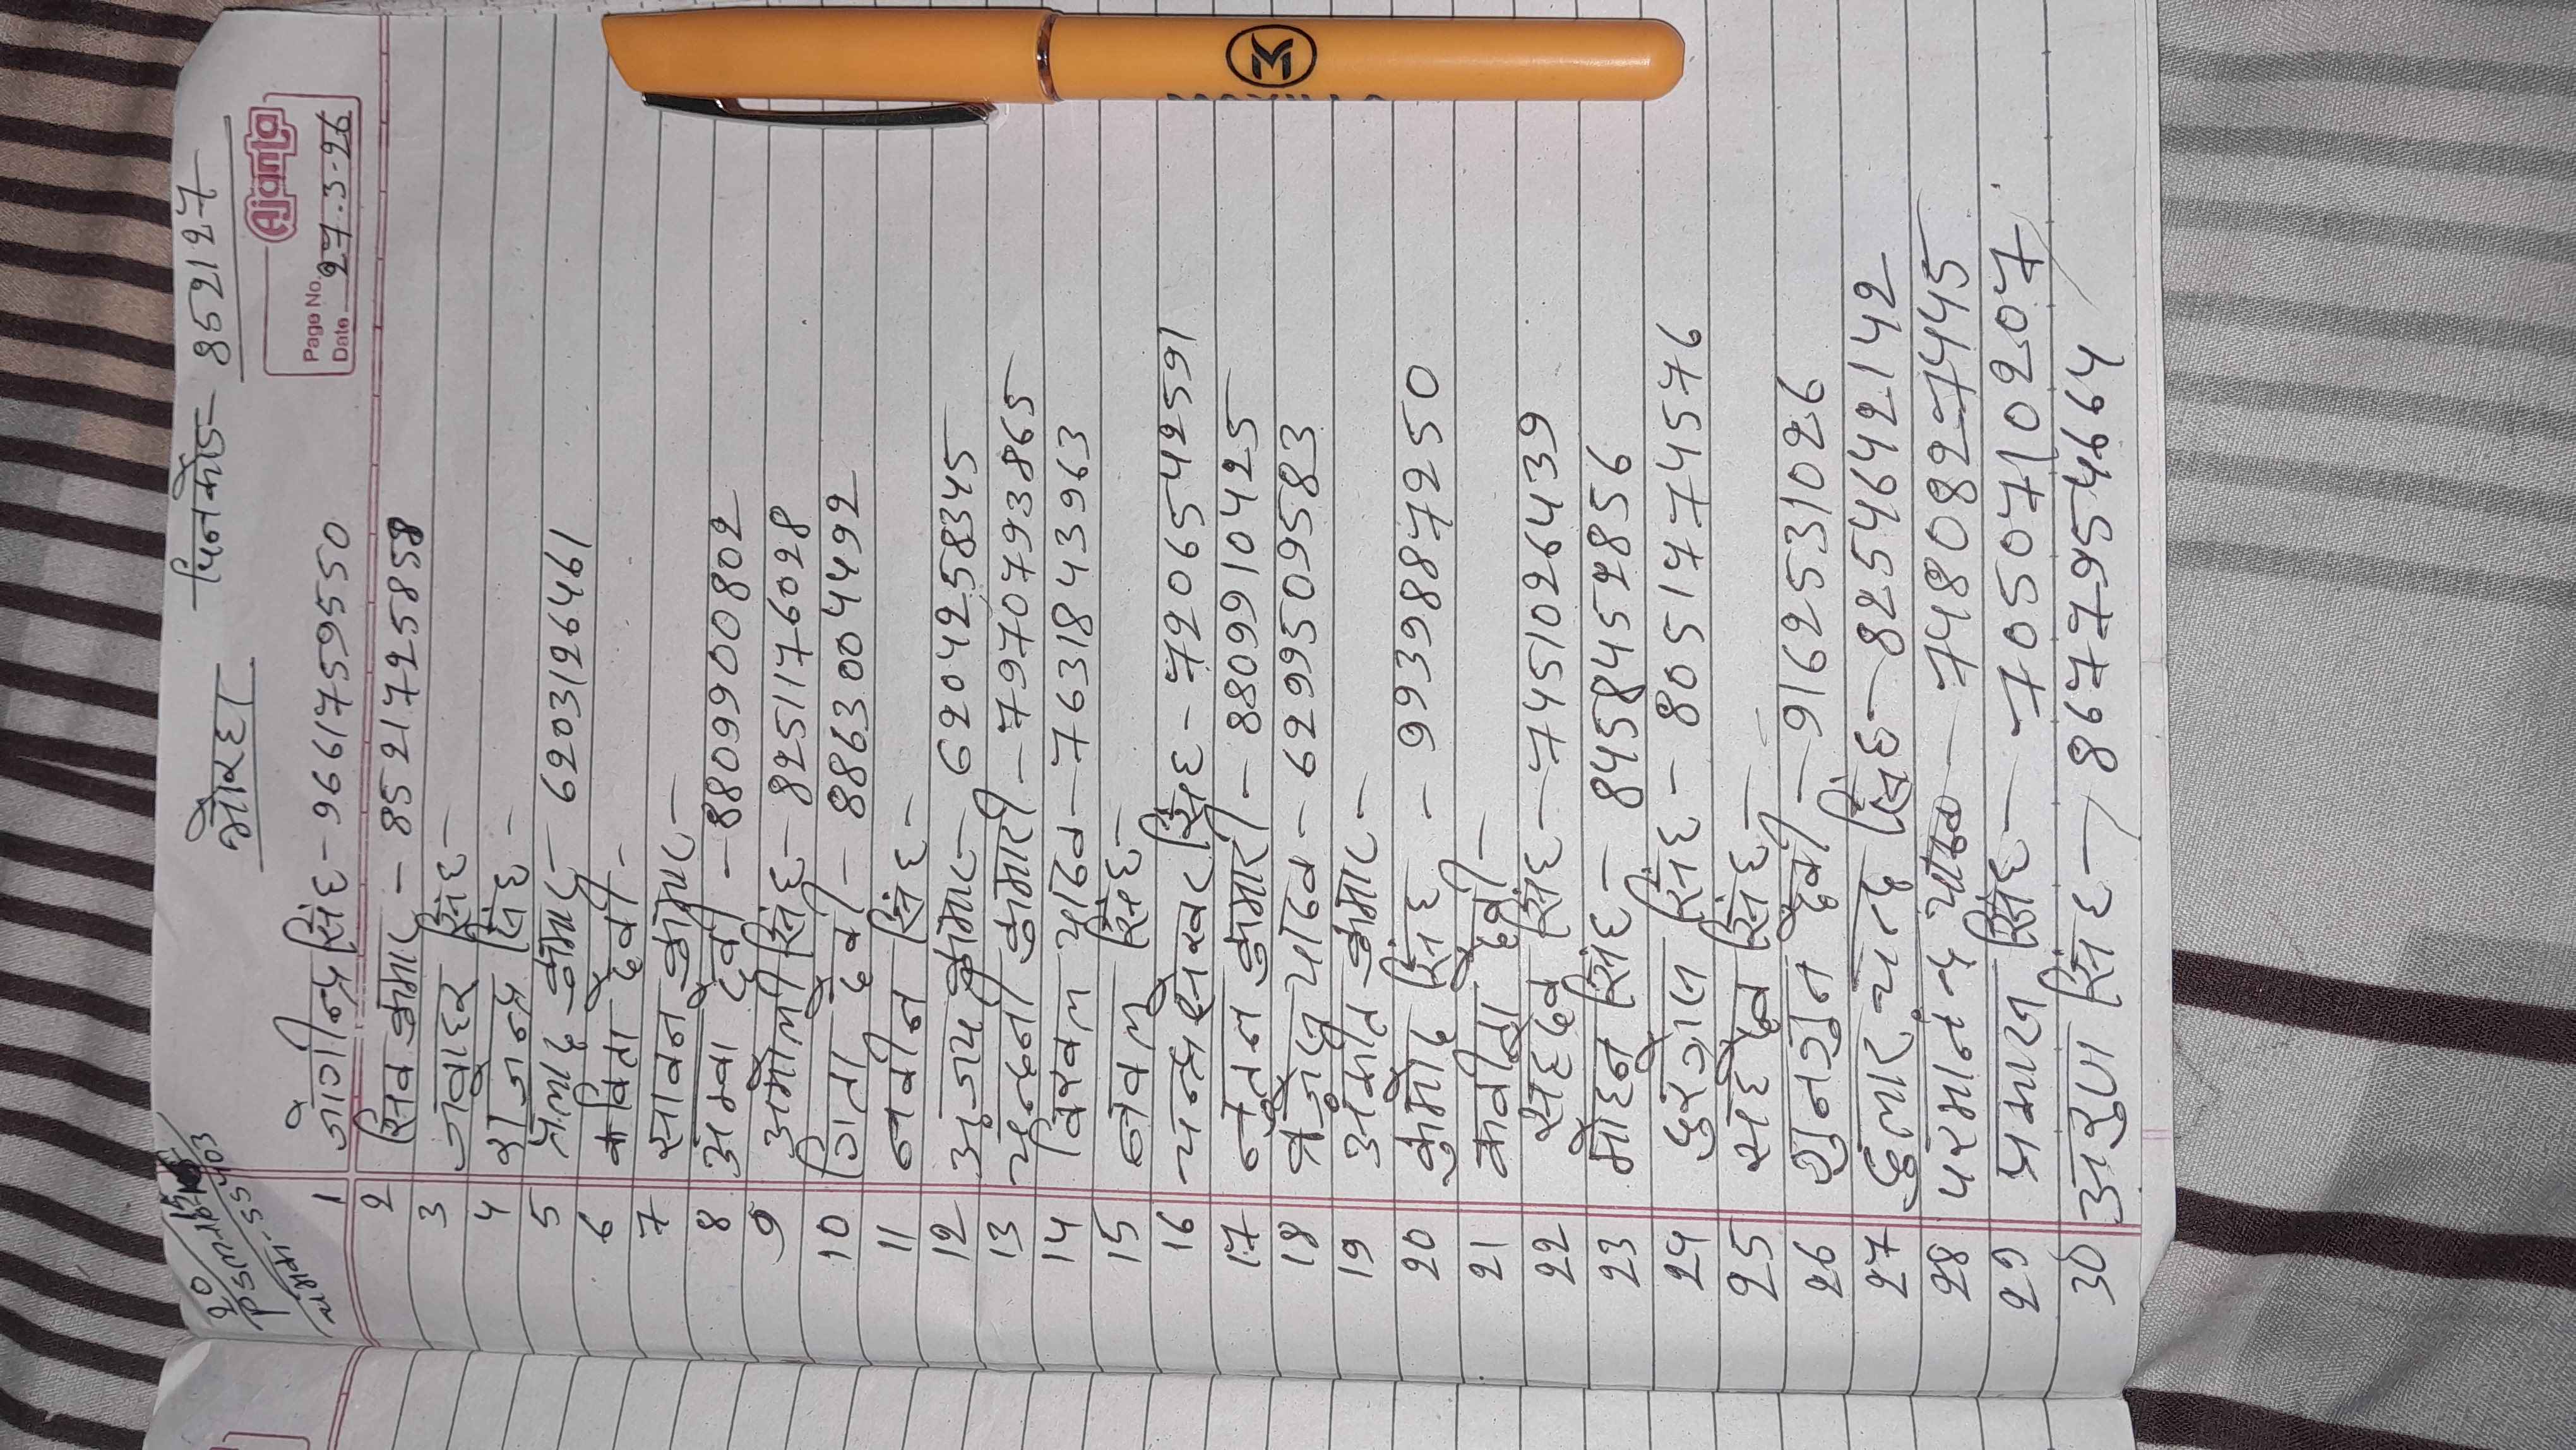 औरहा पिनकोड- 852127
Ajanta
Page No.
Date 27.3-26
20
1 जोगीन्द्र सिंह - 9661759550
2 सिव कुमार - 8521725858
3 जवाहर सिंह -
4 राजेन्द्र सिंह -
5 प्रलाद कुमार - 6203126461
6 कविता देवी -
7 सावन कुमार -
8 अम्बा देवी - 8809900802
9 अमोली सिंह - 8251176028
10 गिता देवी - 8863004492
11 नवीन सिंह -
12 अजय कुमार - 6204258345
13 कुमारी - 7970793865
14 यादव - 7631843963
15 सिंह -
16 चन्द्रसेखर सिंह - 7206542591
17 कुमार - 8809910425
18 यादव - 6299509583
19 अमीत कुमार -
20 कुमोद सिंह - 9939887250
21 कवीता देवी -
22 सहदेव सिंह - 7451026439
23 मोहन सिंह - 8458452856
24 सिंह - 8051474576
25 सहदेव सिंह -
26 देवी - 9162531026
27 दुलारचन्द सिंह - 8254642142
28 परमानन्द यादव - 7480827445
29 प्रकाश सिंह - 7050710207
30 अरुण सिंह - 8677954664